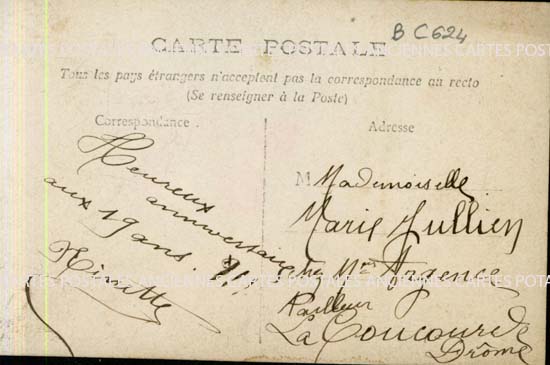 B C624
CARTE POSTALE
CARTES POSTALES ANCIENNES CARTES POSTALES ANCIENNES CARTES POSTALES
Tous les pays étrangers n'acceptent pas la correspondance au recto
(Se renseigner à la Poste)
Correspondance
Heureux
anniversaire
aux 19 ans.
Ninette
Adresse
M Mademoiselle
Marie Jullien
chez Mr Argence
Tailleur
La Coucourde
Drôme